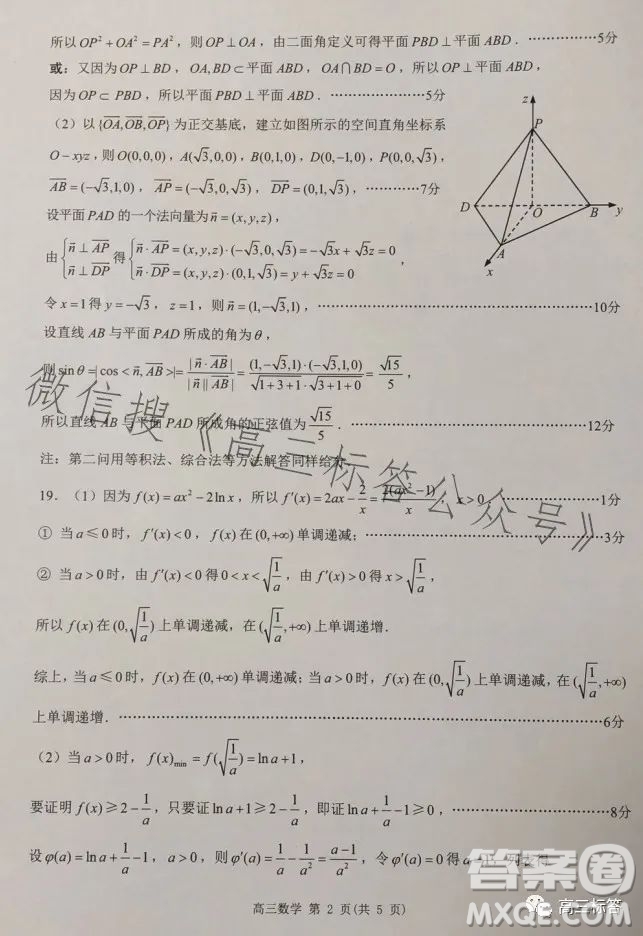 所以OP²+OA²=PA²，则OP⊥OA，由二面角定义可得平面PBD⊥平面ABD．………………5分
或：又因为OP⊥BD，OA,BD⊂平面ABD，OA∩BD=O，所以OP⊥平面ABD，
因为OP⊂PBD，所以平面PBD⊥平面ABD．………………5分
（2）以{OA,OB,OP}为正交基底，建立如图所示的空间直角坐标系
O−xyz，则O(0,0,0)，A(√3,0,0)，B(0,1,0)，D(0,−1,0)，P(0,0,√3)，
AB=(−√3,1,0)，AP=(−√3,0,√3)，DP=(0,1,√3)，…………7分
z
P
D
O
B
y
A
x
设平面PAD的一个法向量为n=(x,y,z)，
由{n⊥AP, n⊥DP 得{n·AP=(x,y,z)·(−√3,0,√3)=−√3x+√3z=0, n·DP=(x,y,z)·(0,1,√3)=y+√3z=0，
令x=1得y=−√3，z=1，则n=(1,−√3,1)，………………10分
设直线AB与平面PAD所成的角为θ，
则sinθ=|cos<n,AB>|=|n·AB|/|n||AB|=(1,−√3,1)·(−√3,1,0)/√(1+3+1)·√(3+1+0)=√15/5，
所以直线AB与平面PAD所成角的正弦值为√15/5．………………12分
注：第二问用等积法、综合法等方法解答同样给分
19．（1）因为f(x)=ax²−2lnx，所以f′(x)=2ax−2/x=2(ax²−1)/x，x>0．………………1分
① 当a≤0时，f′(x)<0，f(x)在(0,+∞)单调递减；………………3分
② 当a>0时，由f′(x)<0得0<x<√(1/a)，由f′(x)>0得x>√(1/a)，
所以f(x)在(0,√(1/a))上单调递减，在(√(1/a),+∞)上单调递增．
综上，当a≤0时，f(x)在(0,+∞)单调递减；当a>0时，f(x)在(0,√(1/a))上单调递减，在(√(1/a),+∞)
上单调递增．………………6分
（2）当a>0时，f(x)min=f(√(1/a))=lna+1，
要证明f(x)≥2−1/a，只要证lna+1≥2−1/a，即证lna+1/a−1≥0，………………8分
设φ(a)=lna+1/a−1，a>0，则φ′(a)=1/a−1/a²=(a−1)/a²，令φ′(a)=0得a
高三数学 第 2 页(共 5 页)
微信搜《高三标答公众号》
答案圈
MXQE.COM
高三标答